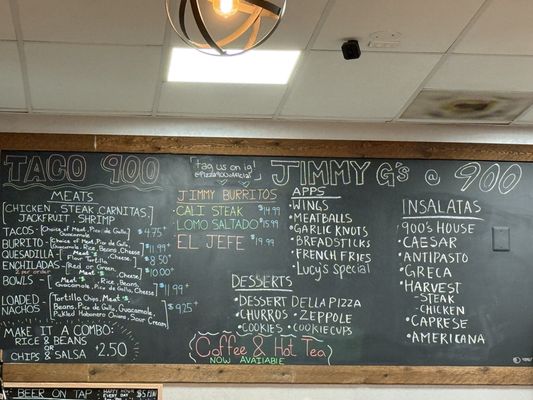 TACO 900
MEATS
[CHICKEN STEAK CARNITAS.]
JACKFRUIT, SHRIMP
TACOS - [Choice of Meat, Pico de Gallo] $4.75
BURRITO - [Choice of Meat, Rice, Beans, Guacamole, Pico de Gallo, Cheese] $11.99
QUESADILLA - [Meat, Cheese] $8.50
ENCHILADAS - [Red or Green, Meat, Cheese] $10.00+
2 per order
BOWLS - [Meat, Rice, Beans, Guacamole, Pico de Gallo, Cheese] $11.99
LOADED NACHOS [Tortilla Chips, Meat, Beans, Pico de Gallo, Guacamole, Pickled Habanero Crema, Sour Cream] $9.25+
MAKE IT A COMBO:
RICE & BEANS
OR
CHIPS & SALSA $2.50
tag us on ig!
JIMMY BURRITOS
CALI STEAK $14.99
LOMO SALTADO $15.99
EL JEFE $19.99
JIMMY G's @ 900
APPS
WINGS
MEATBALLS
GARLIC KNOTS
BREADSTICKS
FRENCH FRIES
Lucy's Special
DESSERTS
• DESSERT DELLA PIZZA
• CHURROS • ZEPPOLE
• COOKIES • COOKIE CUPS
Coffee & Hot Tea
NOW AVAILABLE
INSALATAS
• 900's HOUSE
• CAESAR
• ANTIPASTO
• GRECA
• HARVEST
- STEAK
- CHICKEN
• CAPRESE
• AMERICANA
BEER ON TAP
HAPPY HOUR
EVERY DAY